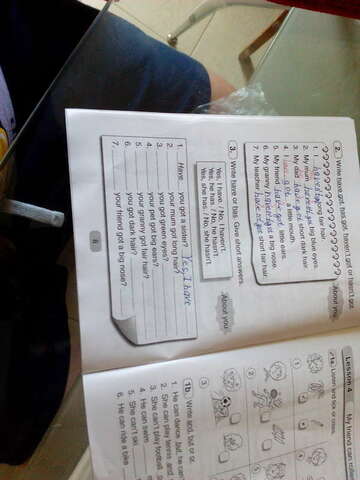 2. Write have got, has got, haven't got or hasn't got.
About you
1. I long fair hair.
2. My mum big blue eyes.
3. My dad short dark hair.
4. I a little mouth.
5. My friend little ears.
6. My granny a big nose.
7. My teacher short fair hair.
3. Write have or has. Give short answers.
About you
Yes, I have. / No, I haven't.
Yes, he has. / No, he hasn't.
Yes, she has. / No, she hasn't.
1. Have you got a sister? Yes, I have
2. your mum got long hair?
3. you got green eyes?
4. your pet got big ears?
5. your granny got fair hair?
6. you got dark hair?
7. your friend got a big nose?
8
Lesson 4 My friend can
1a. Listen and tick or cross.
1
2
3
4
1b. Write and, but or or.
1. He can dance ,but he can
2. She can play tennis and
3. She can't play football
4. He can swim
5. She can't ski
6. He can ride a bike